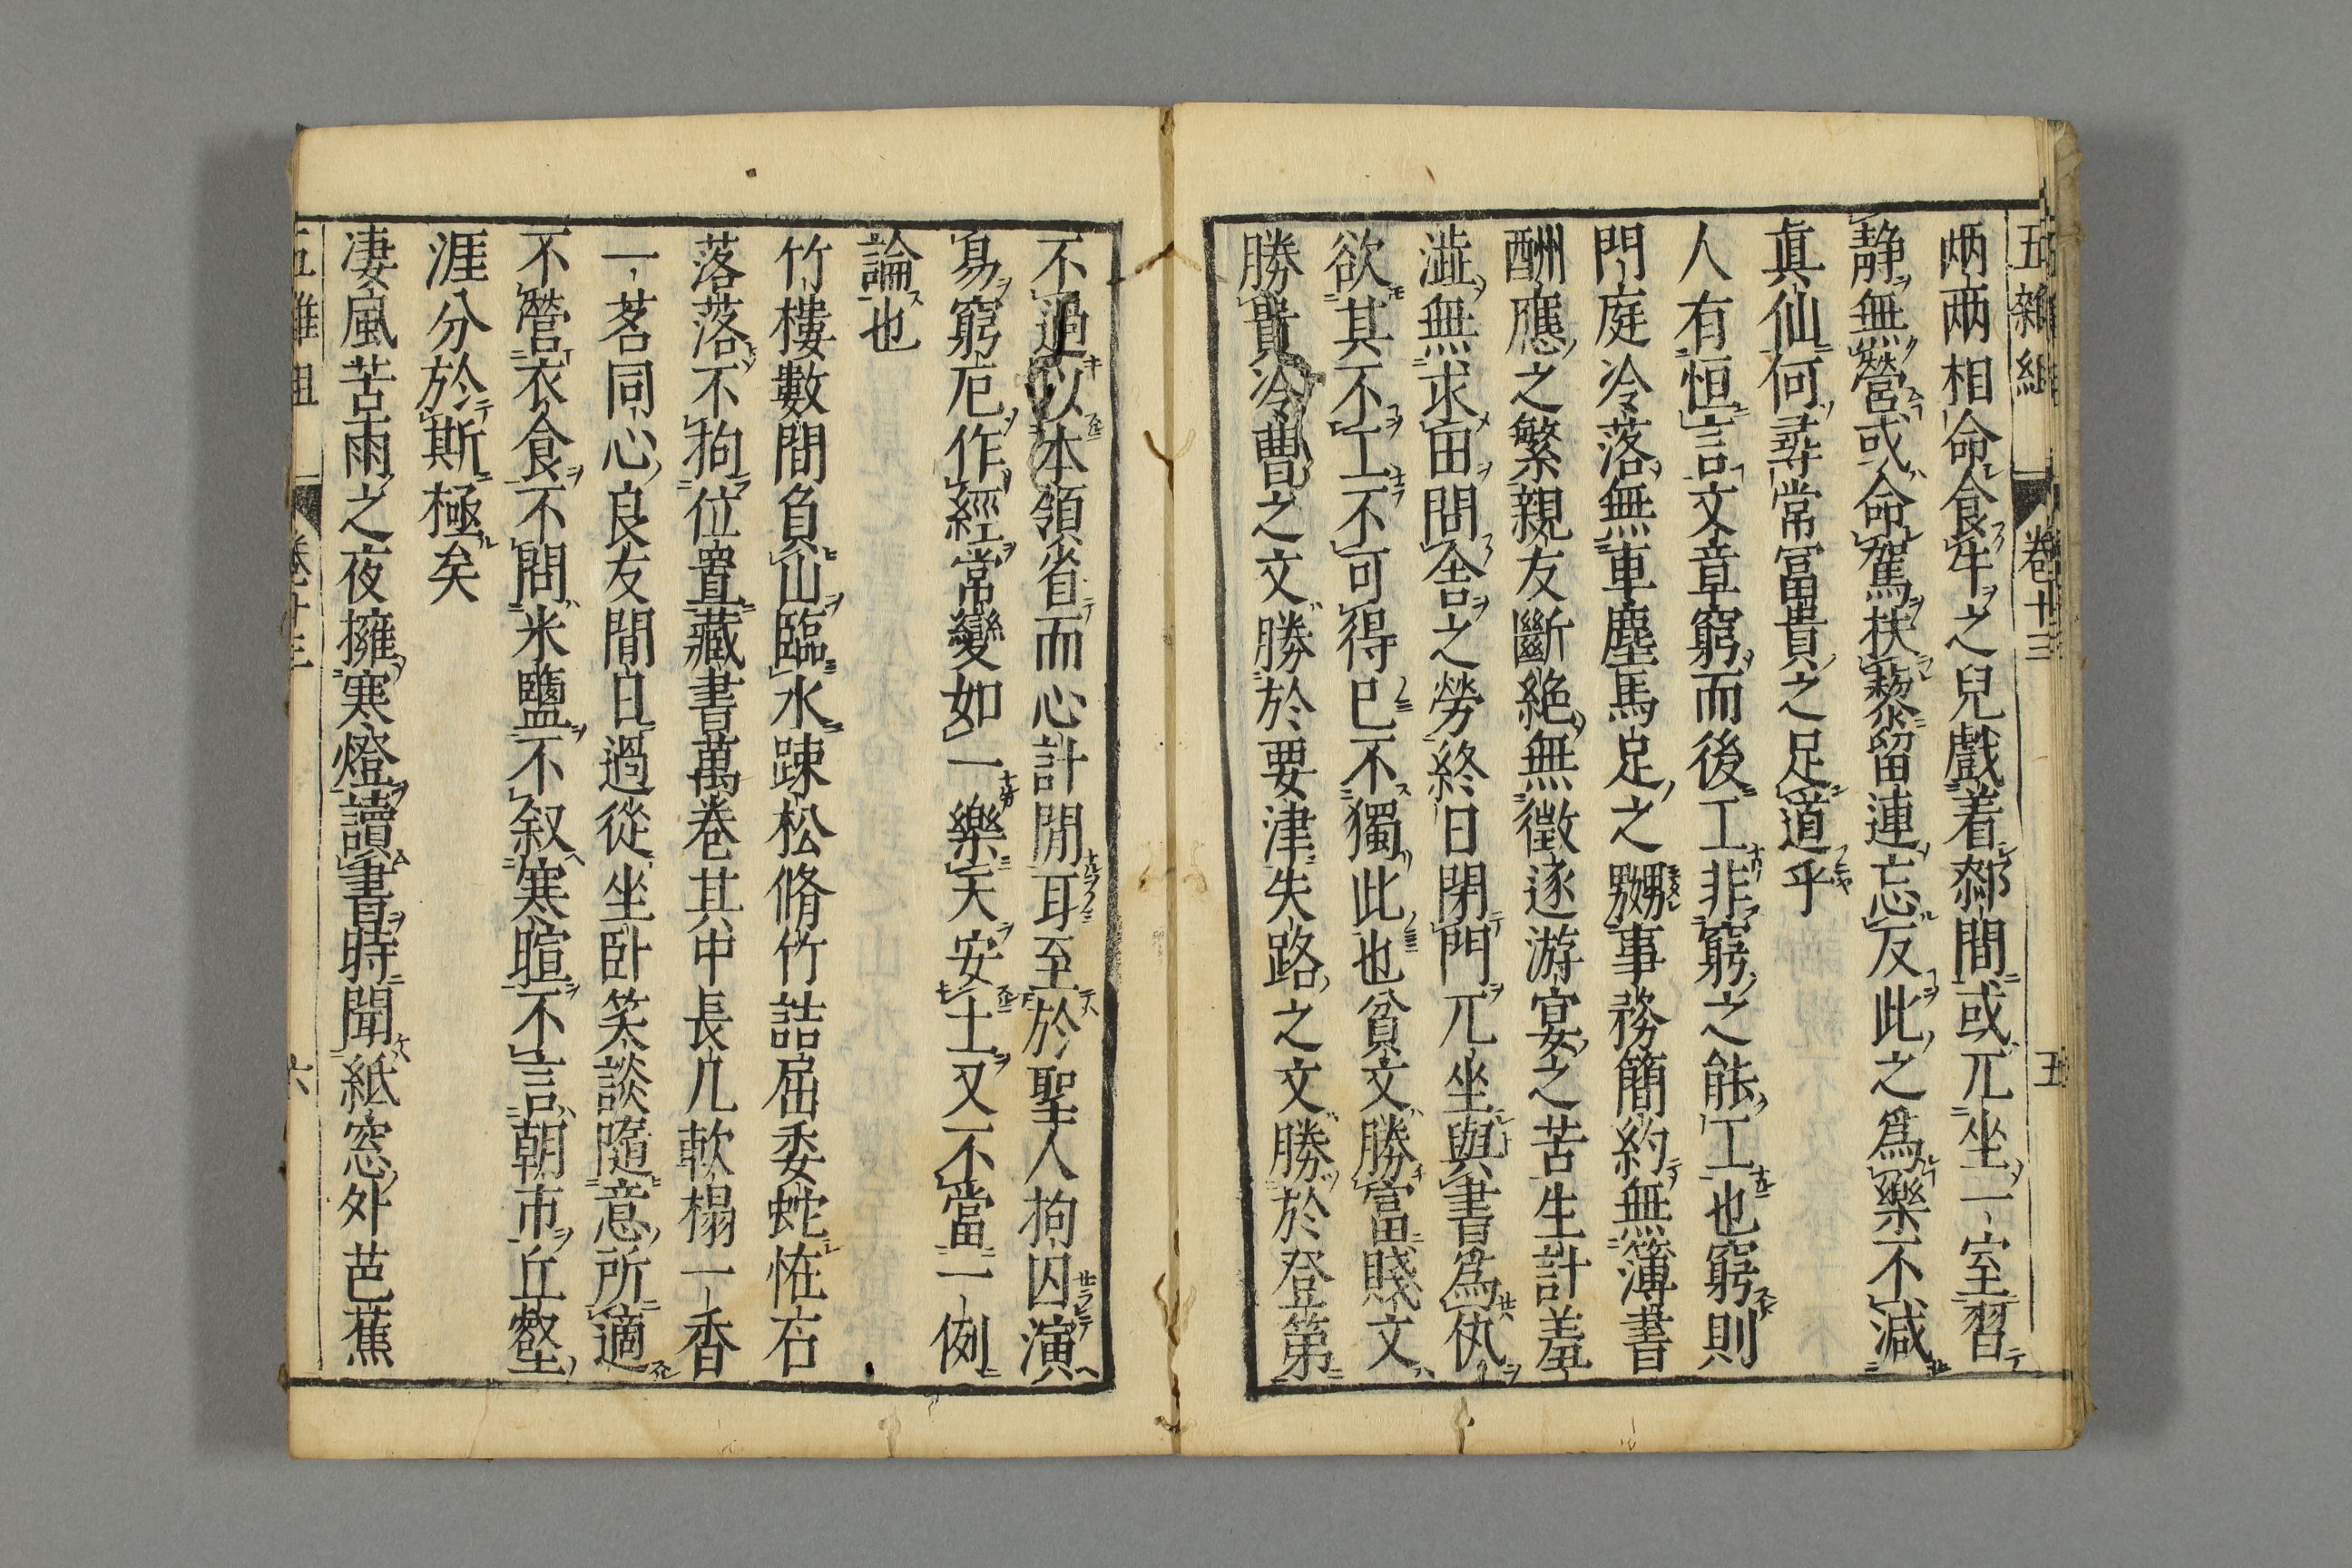 五雜組 卷十三 五
兩兩相命食牛之兒戲着鄰間或兀坐一室習
靜無營或命駕扶藜留連忘反此之爲樂不減
眞仙何尋常富貴之足道乎
人有恒言文章窮而後工非窮之能工也窮則
門庭冷落無車塵馬足之嬲事務簡約無簿書
酬應之繁親友斷絶無徵逐游宴之苦生計羞
澁無求田問舍之勞終日閉門兀坐與書爲仇
欲其不工不可得已不獨此也貧文勝富賤文
勝貴冷曹之文勝於要津失路之文勝於登第
不過以本領省而心計閒耳至於聖人拘囚演
易窮厄作經常變如一樂天安土又不當一例
論也
竹樓數間負山臨水踈松脩竹詰屈委蛇恠石
落落不拘位置藏書萬卷其中長几軟榻一香
一茗同心良友間日過從坐卧笑談隨意所適
不營衣食不問米鹽不叙寒暄不言朝市丘壑
涯分於斯極矣
凄風苦雨之夜擁寒燈讀書時聞紙窓外芭蕉
五雜組 卷十三 六